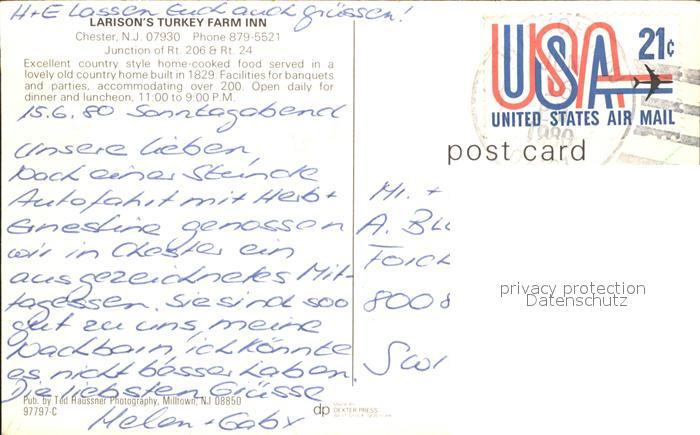 H+E lassen Euch auch grüssen!
LARISON'S TURKEY FARM INN
Chester, N.J. 07930 Phone 879-5521
Junction of Rt. 206 & Rt. 24
Excellent country style home-cooked food served in a
lovely old country home built in 1829. Facilities for banquets
and parties, accommodating over 200. Open daily for
dinner and luncheon, 11:00 to 9:00 P.M.
15.6.80 Sonntagabend
Unsere Lieben
Nach einer Stunde
Autofahrt mit Herb+
Ernestine genossen
wir in Chester ein
ausgezeichnetes Mit-
tagessen. Sie sind soo
gut zu uns, meine
Nachbarin, ich könnte
es nicht besser haben.
Die liebsten Grüsse
Helen + Gaby
Pub. by Ted Haussner Photography, Milltown, NJ 08850
97797-C
dp
DEXTER PRESS
USA 21c
UNITED STATES AIR MAIL
post card
Mr. +
A. Bl
Forch
8008
Swi
privacy protection
Datenschutz